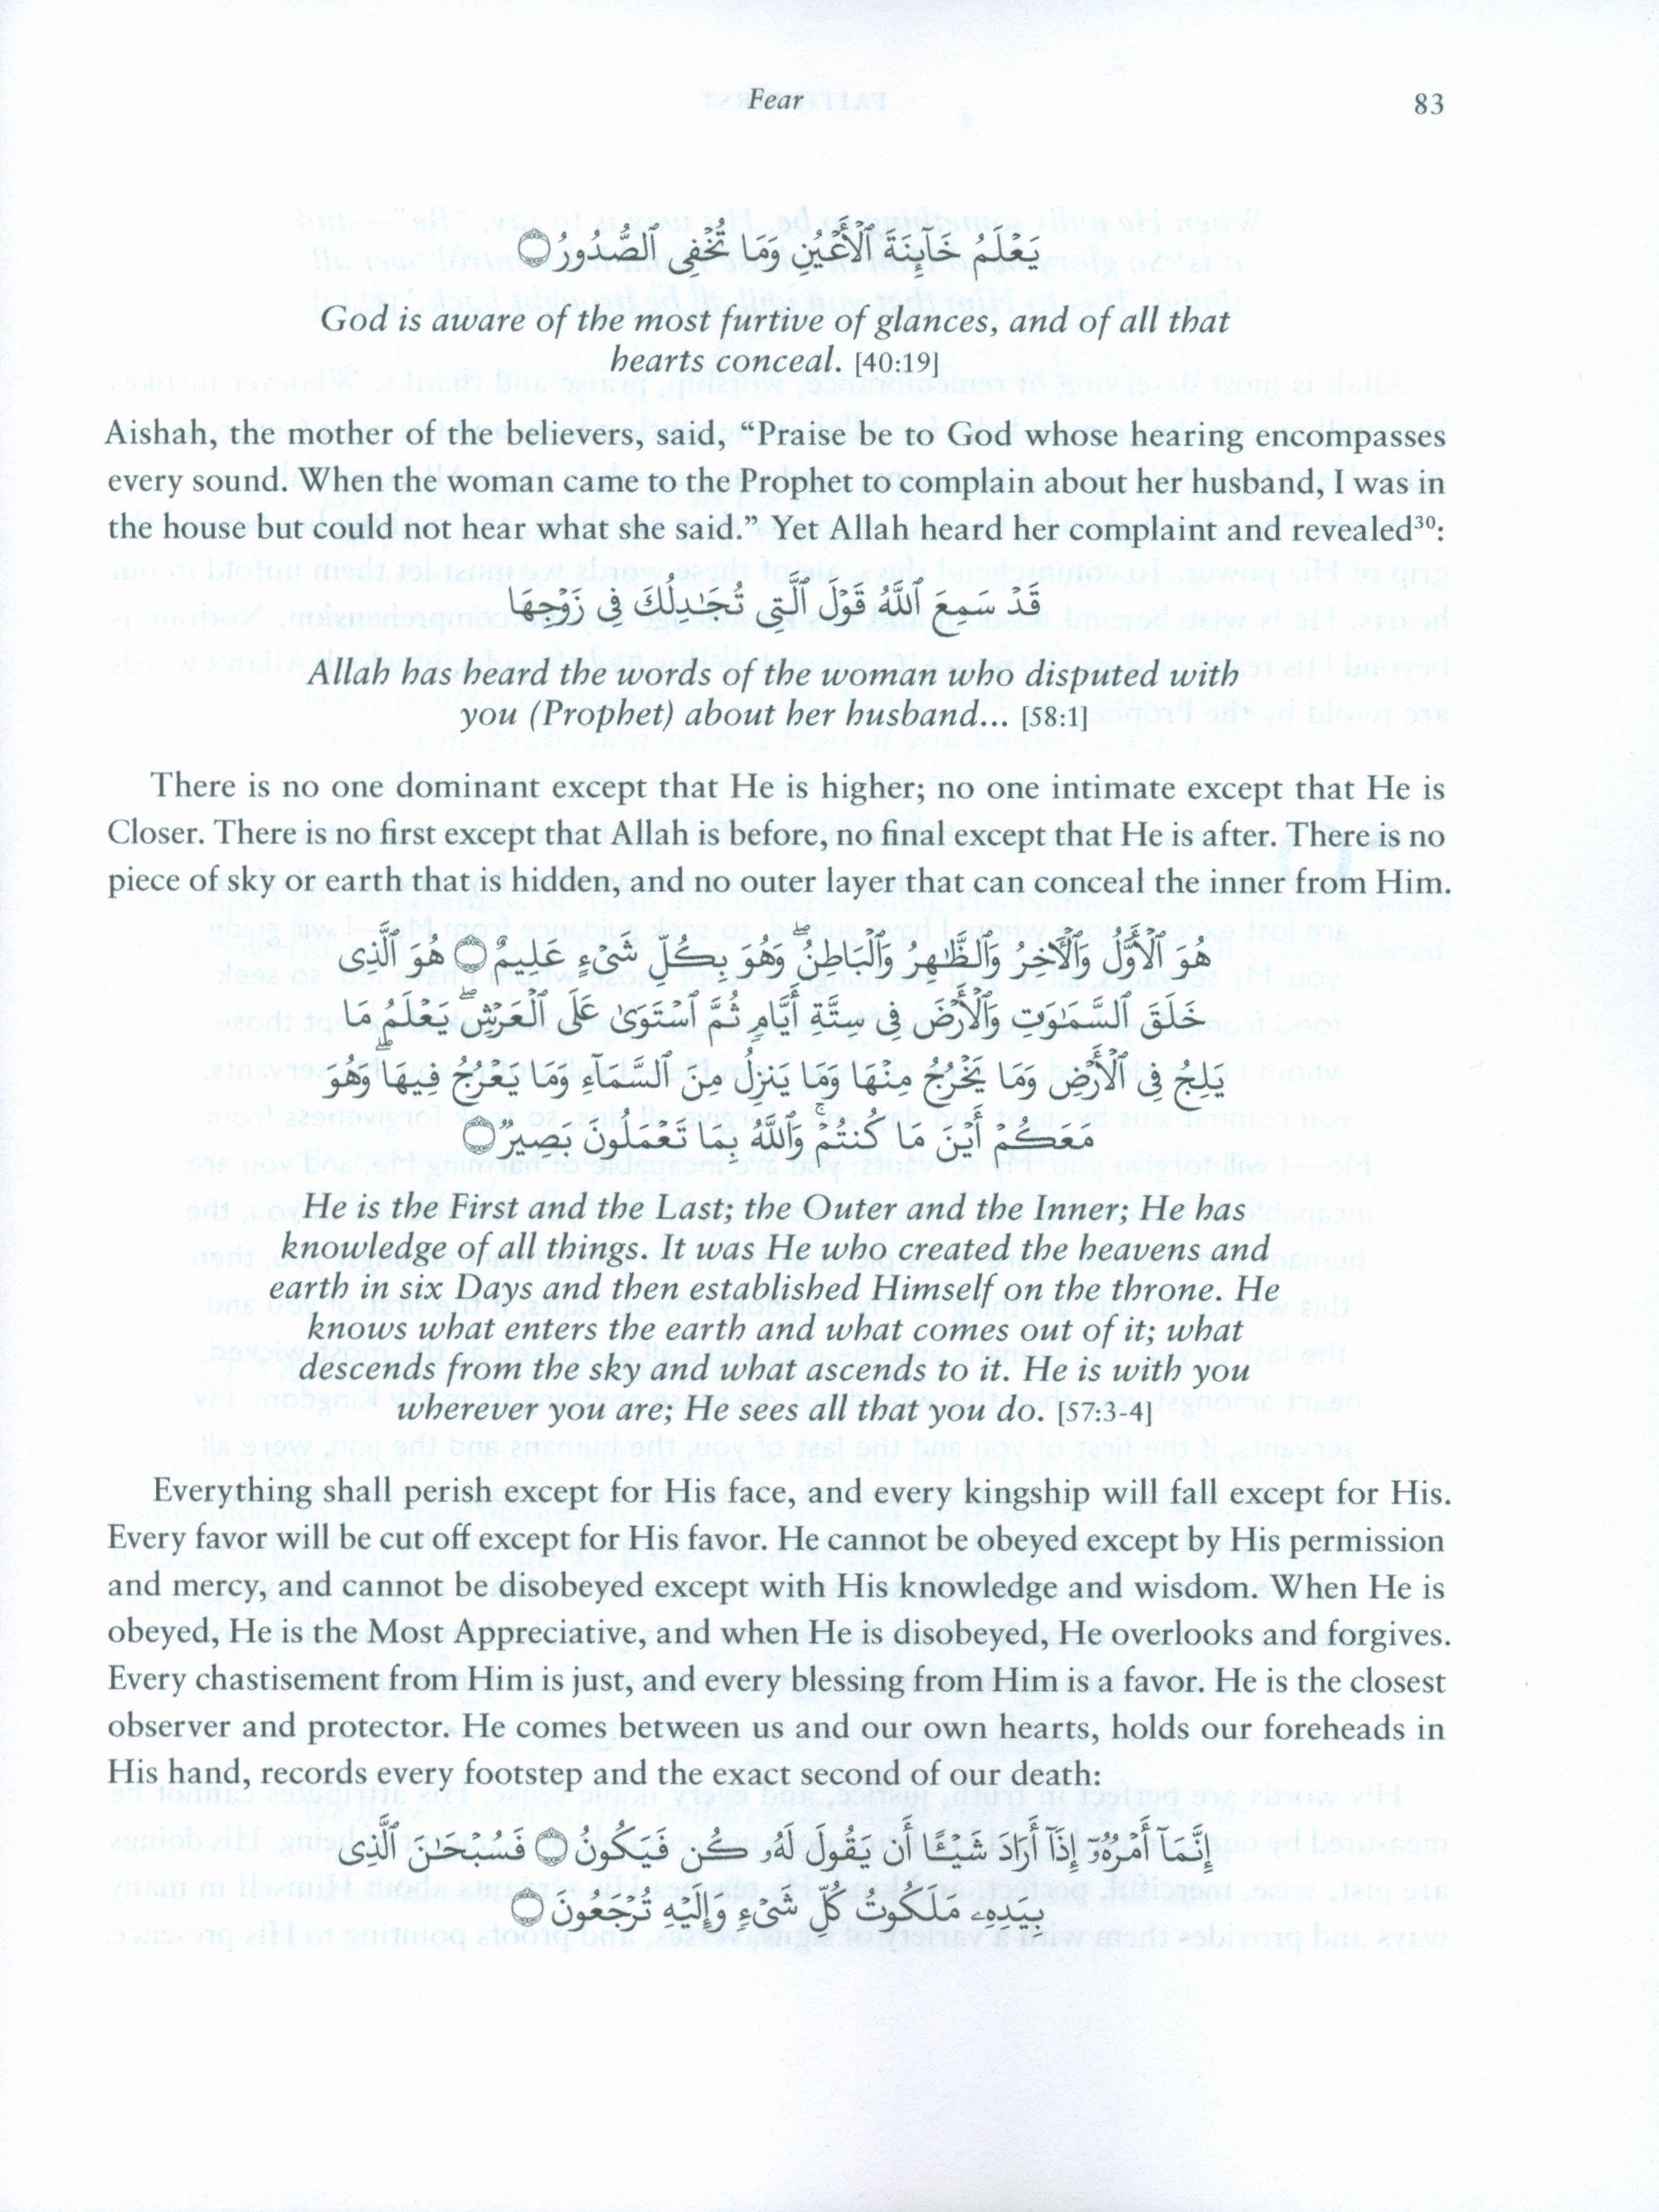 Fear 83
يَعْلَمُ خَآئِنَةَ ٱلْأَعْيُنِ وَمَا تُخْفِى ٱلصُّدُورُ ۝
God is aware of the most furtive of glances, and of all that
hearts conceal. [40:19]
Aishah, the mother of the believers, said, “Praise be to God whose hearing encompasses
every sound. When the woman came to the Prophet to complain about her husband, I was in
the house but could not hear what she said.” Yet Allah heard her complaint and revealed³⁰:
قَدْ سَمِعَ ٱللَّهُ قَوْلَ ٱلَّتِى تُجَـٰدِلُكَ فِى زَوْجِهَا
Allah has heard the words of the woman who disputed with
you (Prophet) about her husband... [58:1]
There is no one dominant except that He is higher; no one intimate except that He is
Closer. There is no first except that Allah is before, no final except that He is after. There is no
piece of sky or earth that is hidden, and no outer layer that can conceal the inner from Him.
هُوَ ٱلْأَوَّلُ وَٱلْأَخِرُ وَٱلظَّـٰهِرُ وَٱلْبَاطِنُ ۖ وَهُوَ بِكُلِّ شَىْءٍ عَلِيمٌ ۝ هُوَ ٱلَّذِى
خَلَقَ ٱلسَّمَـٰوَٰتِ وَٱلْأَرْضَ فِى سِتَّةِ أَيَّامٍ ثُمَّ ٱسْتَوَىٰ عَلَى ٱلْعَرْشِ ۖ يَعْلَمُ مَا
يَلِجُ فِى ٱلْأَرْضِ وَمَا يَخْرُجُ مِنْهَا وَمَا يَنزِلُ مِنَ ٱلسَّمَآءِ وَمَا يَعْرُجُ فِيهَا ۖ وَهُوَ
مَعَكُمْ أَيْنَ مَا كُنتُمْ ۚ وَٱللَّهُ بِمَا تَعْمَلُونَ بَصِيرٌ ۝
He is the First and the Last; the Outer and the Inner; He has
knowledge of all things. It was He who created the heavens and
earth in six Days and then established Himself on the throne. He
knows what enters the earth and what comes out of it; what
descends from the sky and what ascends to it. He is with you
wherever you are; He sees all that you do. [57:3-4]
Everything shall perish except for His face, and every kingship will fall except for His.
Every favor will be cut off except for His favor. He cannot be obeyed except by His permission
and mercy, and cannot be disobeyed except with His knowledge and wisdom. When He is
obeyed, He is the Most Appreciative, and when He is disobeyed, He overlooks and forgives.
Every chastisement from Him is just, and every blessing from Him is a favor. He is the closest
observer and protector. He comes between us and our own hearts, holds our foreheads in
His hand, records every footstep and the exact second of our death:
إِنَّمَآ أَمْرُهُۥٓ إِذَآ أَرَادَ شَيْـًٔا أَن يَقُولَ لَهُۥ كُن فَيَكُونُ ۝ فَسُبْحَـٰنَ ٱلَّذِى
بِيَدِهِۦ مَلَكُوتُ كُلِّ شَىْءٍ وَإِلَيْهِ تُرْجَعُونَ ۝